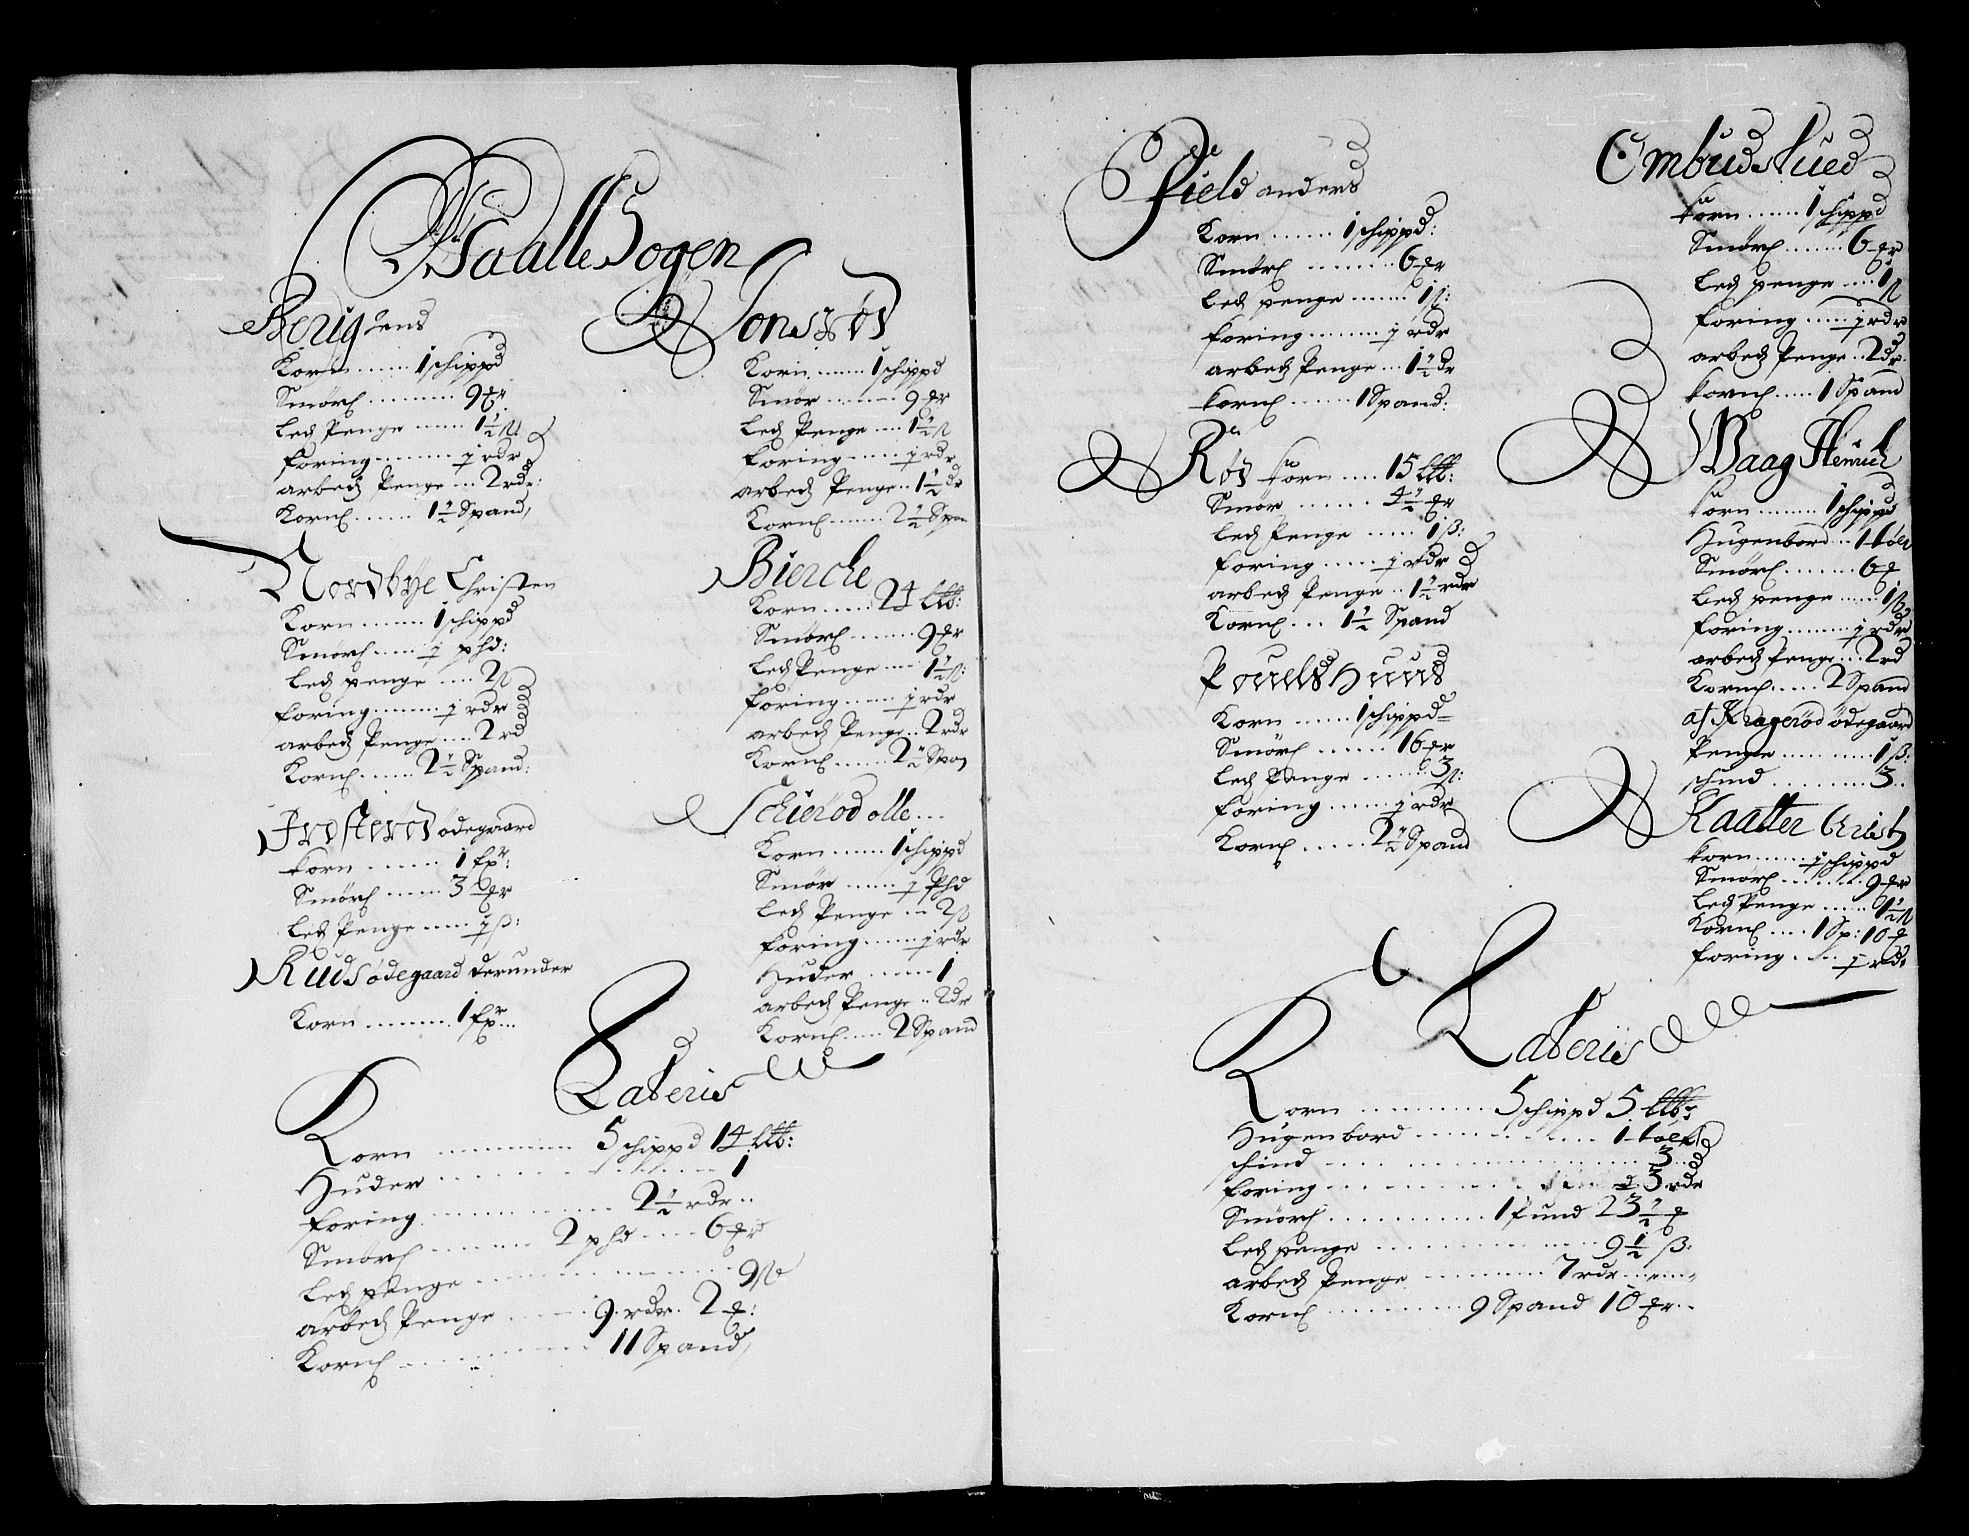 Waalle Sogen
Berig Jens
Korn ...... 1 schippd
Smørs ......... 9 £r
Leds Penge ...... 1½ ß
foring ........ ½ rdr
arbeds Penge ... 2 rdr:
Korns ...... 1½ Spand
Nordbye Christen
Korn ....... 1 schippd
Smørs ..... ½ phd:
Leds penge .... 2 ß
foring ....... ½ rdr
arbeds Penge .... 2 rd
Korns ...... 2½ Spand:
ødegaard
korn ....... 1 fxr:
Smørs ...... 3 £r
Leds Penge ..... ½ ß:
Ruds ødegaard derunder
Korn ......... 1 fxr...
Jonsrød
Korn ....... 1 schippd
Smør ....... 9 £r
Leds Penge .... 1½ ß
foring ...... ½ rdr
arbeds Penge .. 1½ dr
Korns ...... 2½ Span
Bierche
Korn ..... 24 l℔:
Smørs ....... 9 £r
Leds Penge .... 1½ ß:
foring ..... ½ rdr
arbeds Penge .. 2 rdr
Korns ...... 2½ Spa
Schierød olle...
Korn ...... 1 schippd
Smør ...... ½ Phd
Leds Penge ... 2 ß
foring ...... ½ rdr
Huder ....... 1
arbeds Penge .. 2 dr
Korns ..... 2 Spand
Lateris
Korn ............ 5 schippd 14 l℔:
Huder ............ 1
foring ............ 2½ rdr ..
Smørs ........ 2 phd ..... 6 £r
Leds penge ............ 9 ß
arbeds Penge ...... 9 rdr. 2 £:
Korns ............ 11 Spand
Field anders
Korn ...... 1 schippd:
Smørs ........ 6 £r
Leds penge ....... 1 ß:
foring ........ ½ rdr
arbeds Penge ... 1½ dr
korns ...... 1 Spand:
Rød korn .... 15 l℔:
Smør ...... 4½ £r
Leds Penge ..... 1 ß:
foring ..... ½ rdr
arbeds Penge .. 1½ rdr
Korns ... 1½ Spand
Pouels Huus
Korn ...... 1 schippd=
Smørs ...... 16 £r
Leds Penge ...... 3 ß:
foring ...... ½ rdr
Korns ..... 2½ Spand
Ombudstued
korn ...... 1 schippd
Smørs ....... 6 £r
Leds penge .... 1 ß
foring ..... ½ rdr
arbeds Penge .. 2 dr.
korns ..... 1 Spand
Waag Henrich
korn ....... 1 schippd
Hugenbord ... 1 tølt
Smørs ....... 6 £
Leds penge ...... 1 ß
foring ....... ½ rdr
arbeds Penge ... 2 rd
Korns ..... 2 Spand
af Kragerød ødegaard
Penge ......... 1 ß:
schind ......... 3..
Kaatter Christ
korn ...... ½ schippd
Smørs ........ 9 £r
Leds Penge ..... 1½ ß
Korns .... 1 Sp: 10 £
foring .... ½ rdr
Lateris
Korn ............ 5 schippd 5 l℔:
Hugenbord ............ 1 tølt
schind ............ 3 ..
foring ............ 3 rdr
Smørs ............ 1 fund 23½ £
Leds penge ............ 9½ ß:
arbeds Penge ......... 7 rdr
Korns ......... 9 Spand 10 £r..